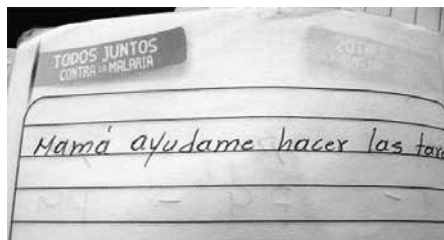 TODOS JUNTOS
CONTRA LA MALARIA
Mamá ayudame hacer las